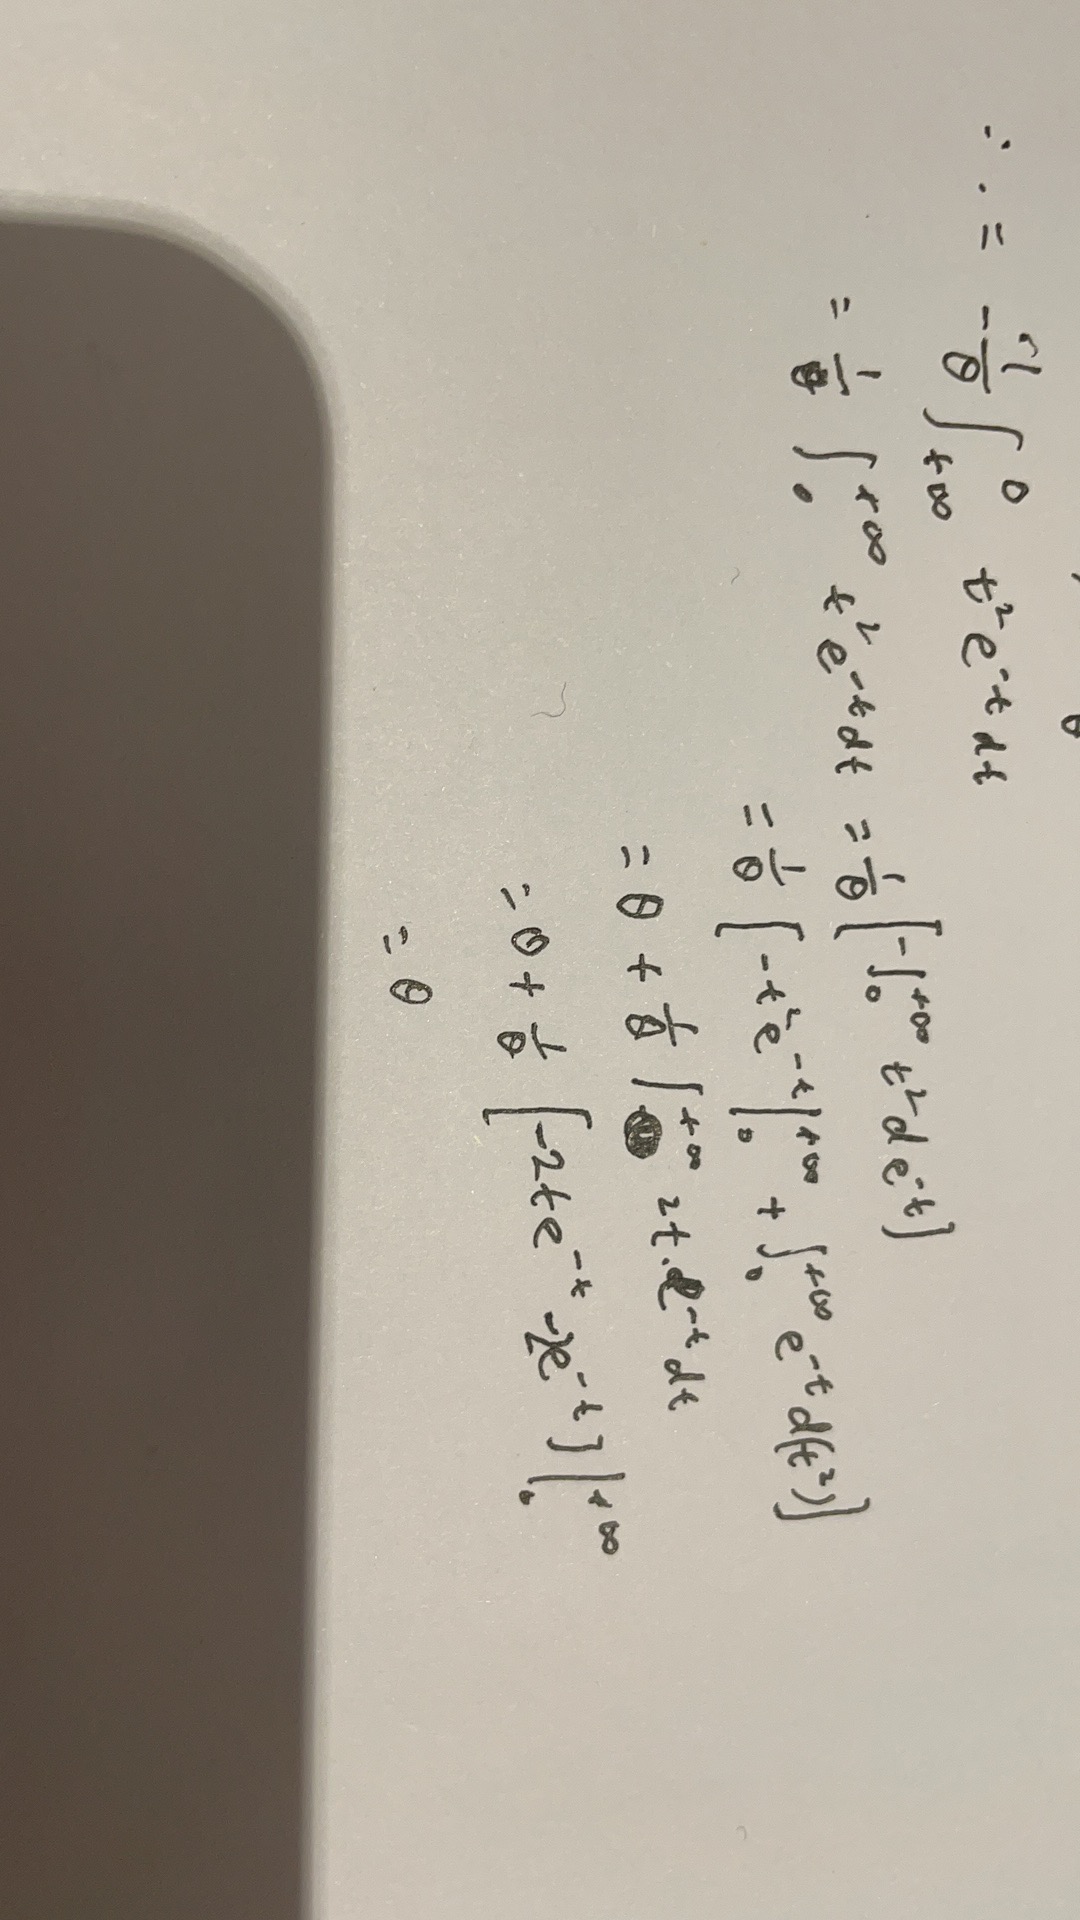 ∴ · = -1/θ ∫_{+∞}^{0} t²e^{-t} dt
= 1/θ ∫_{0}^{+∞} t²e^{-t}dt = 1/θ [-∫_{0}^{+∞} t²d e^{-t}]
= 1/θ [-t²e^{-t}|_{0}^{+∞} + ∫_{0}^{+∞} e^{-t}d(t²)]
= θ + 1/θ ∫^{+∞} 2t·e^{-t}dt
= θ + 1/θ [-2te^{-t} -2e^{-t}]|_{0}^{+∞}
= θ